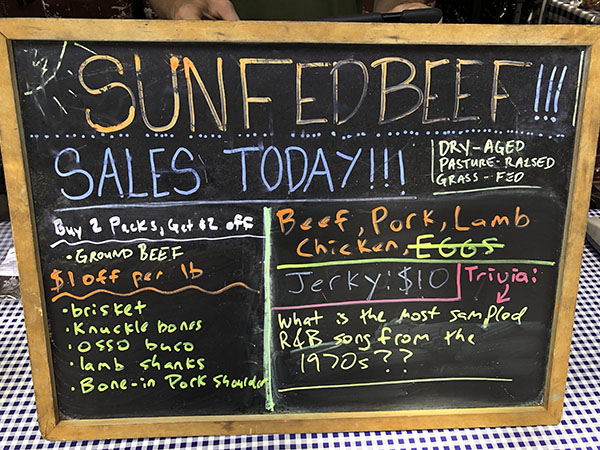 SUNFED BEEF!!!
SALES TODAY!!!
DRY-AGED
PASTURE-RAISED
GRASS-FED
Buy 2 Packs, Get $2 off
• GROUND BEEF
$1 off per lb
• brisket
• Knuckle bones
• osso buco
• lamb shanks
• Bone-in Pork Shoulder
Beef, Pork, Lamb
Chicken, EGGS
Jerky: $10
Trivia:
What is the most sampled
R&B song from the
1970s??